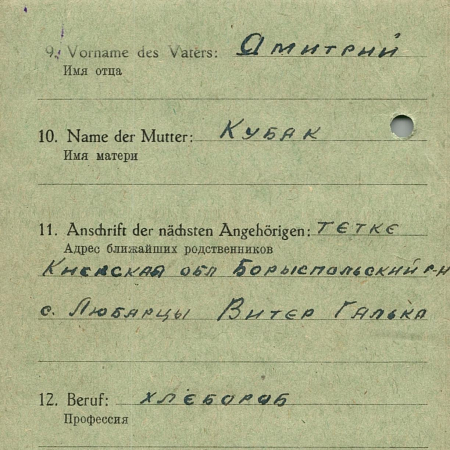 9. Vorname des Vaters: Дмитрий
Имя отца
10. Name der Mutter: Кубак
Имя матери
11. Anschrift der nächsten Angehörigen: тетке
Адрес ближайших родственников
Киевская обл Борыспольский р-н
с. Любарцы Витер Галька
12. Beruf: хлебораб
Профессия